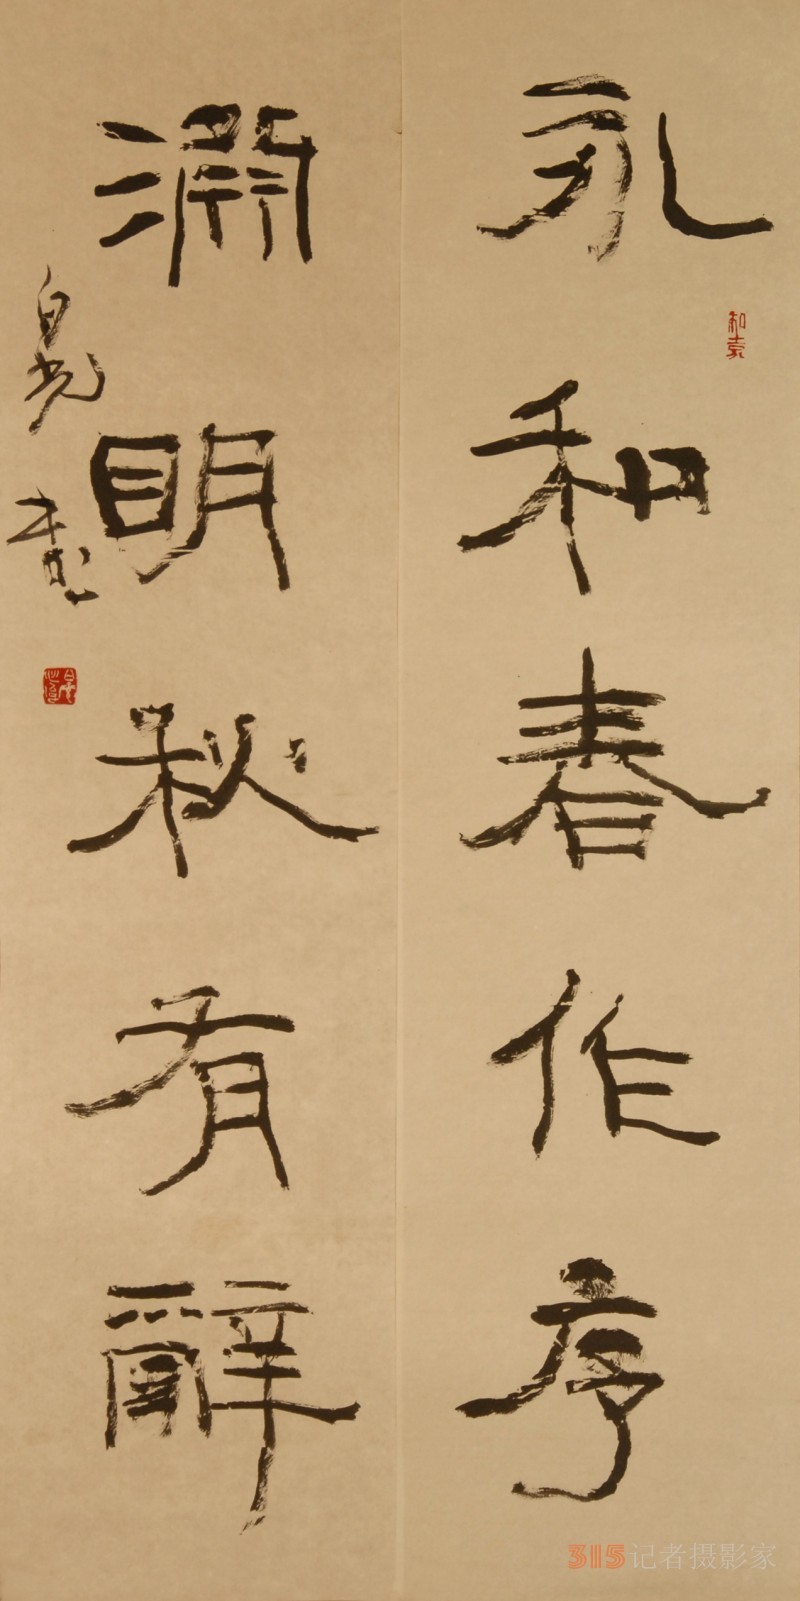 永和春作序
渊明秋有辞
晃书
和素
315记者摄影家